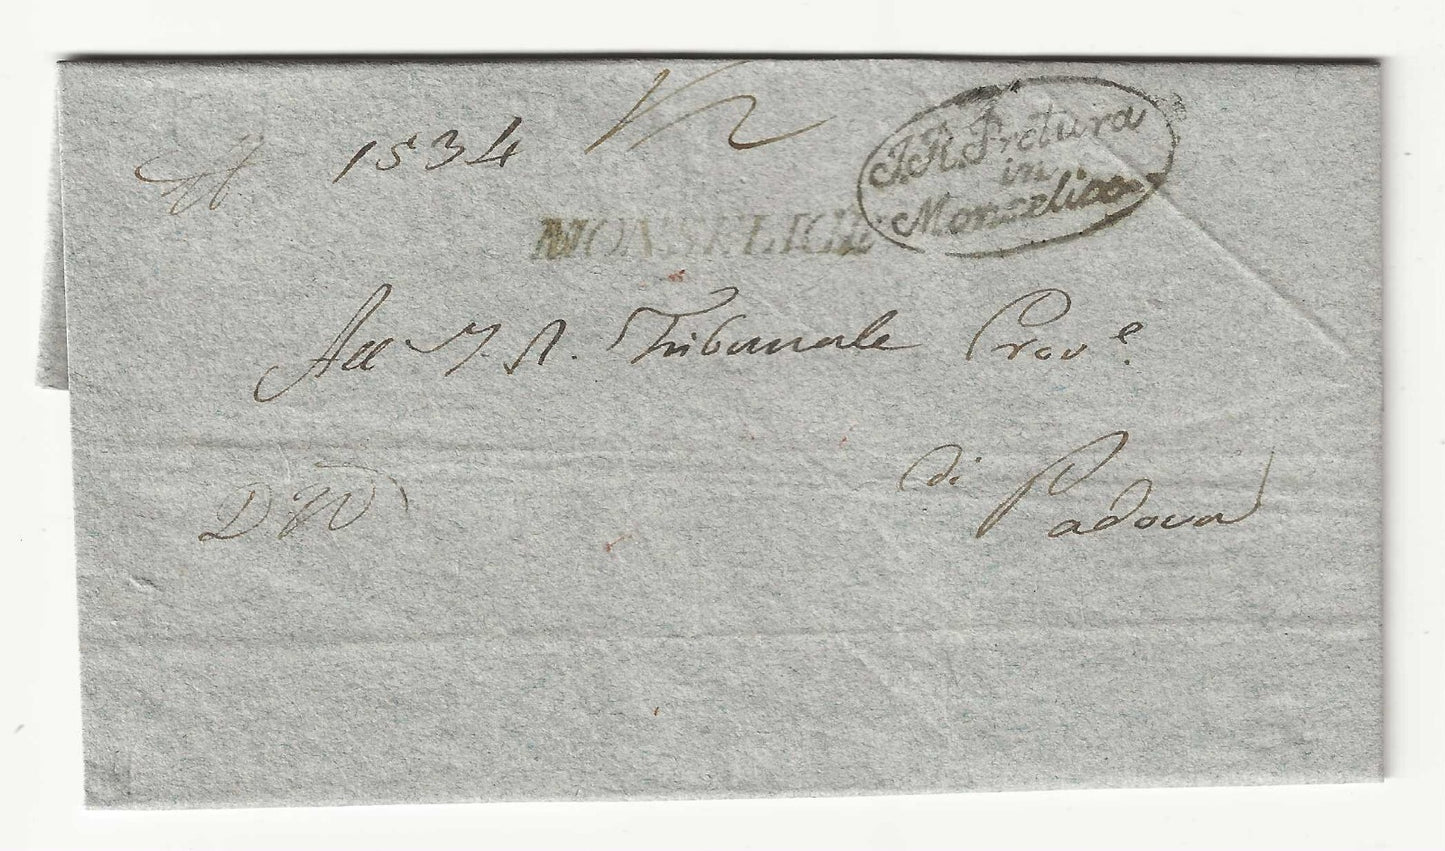 N 1534
I. R. Pretura
in
Monselice
MONSELICE
All I. R. Tribunale Prov.e
di Padova